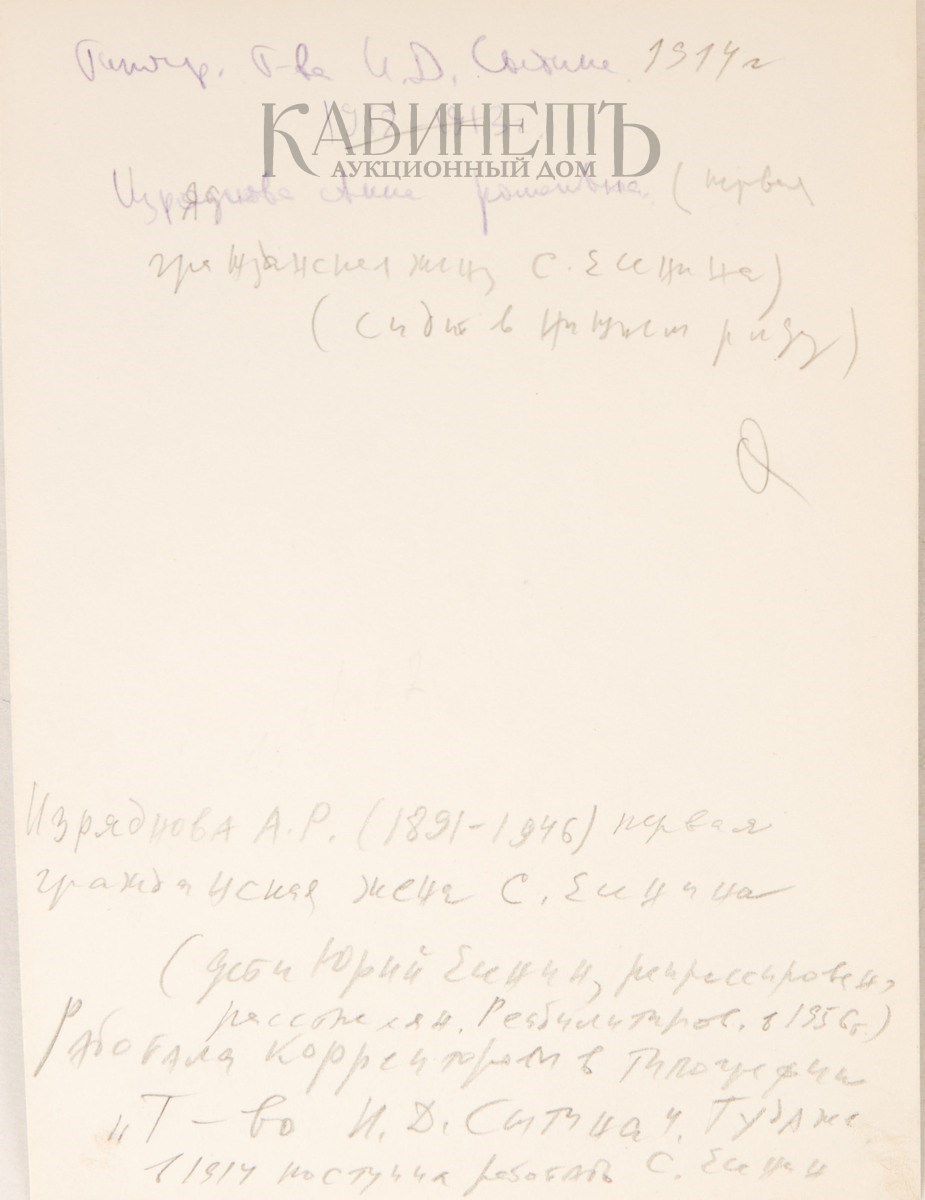 Типогр. Т-ва И.Д. Сытина 1914 г
1912-1913 г.
КАБИНЕТЪ
АУКЦИОННЫЙ ДОМ
Изряднова Анна Романовна (первая
гражданская жена С. Есенина)
(сидит в нижнем ряду)
Изряднова А.Р. (1891-1946) первая
гражданская жена С. Есенина
(дети Юрий Есенин, репрессирован,
расстрелян. Реабилитиров. в 1956 г.)
Работала корректором в типографии
„Т-во И.Д. Сытина". Туда же
в 1914 поступил работать С. Есенин